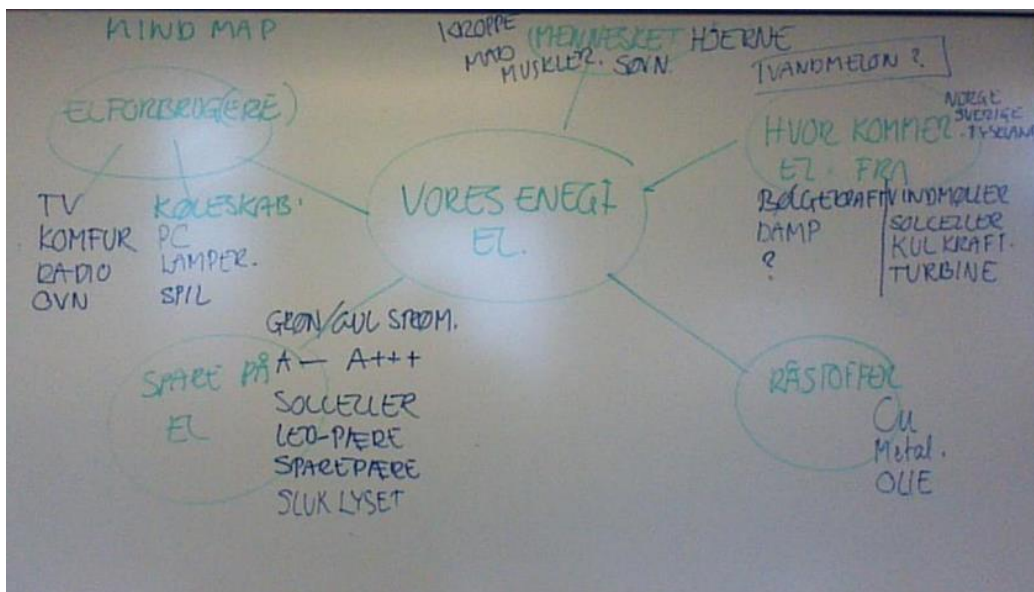 MIND MAP
KROPPE
MAD
MUSKLER. SØVN.
(MENNESKET HJERNE
VANDMELON ?
ELFORBRUG(ERE)
TV
KOMFUR
RADIO
OVN
KØLESKAB.
PC
LAMPER.
SPIL
VORES ENEGI
EL.
HVOR KOMMER
EL. FRA
NORGE
SVERIGE
TYSKLAND
BØLGEKRAFT
DAMP
?
VINDMØLLER
SOLCELLER
KULKRAFT.
TURBINE
SPARE PÅ
EL
GRØN/GUL STRØM.
A — A+++
SOLCELLER
LED-PÆRE
SPAREPÆRE
SLUK LYSET
RÅSTOFFER
Cu
Metal.
OLIE